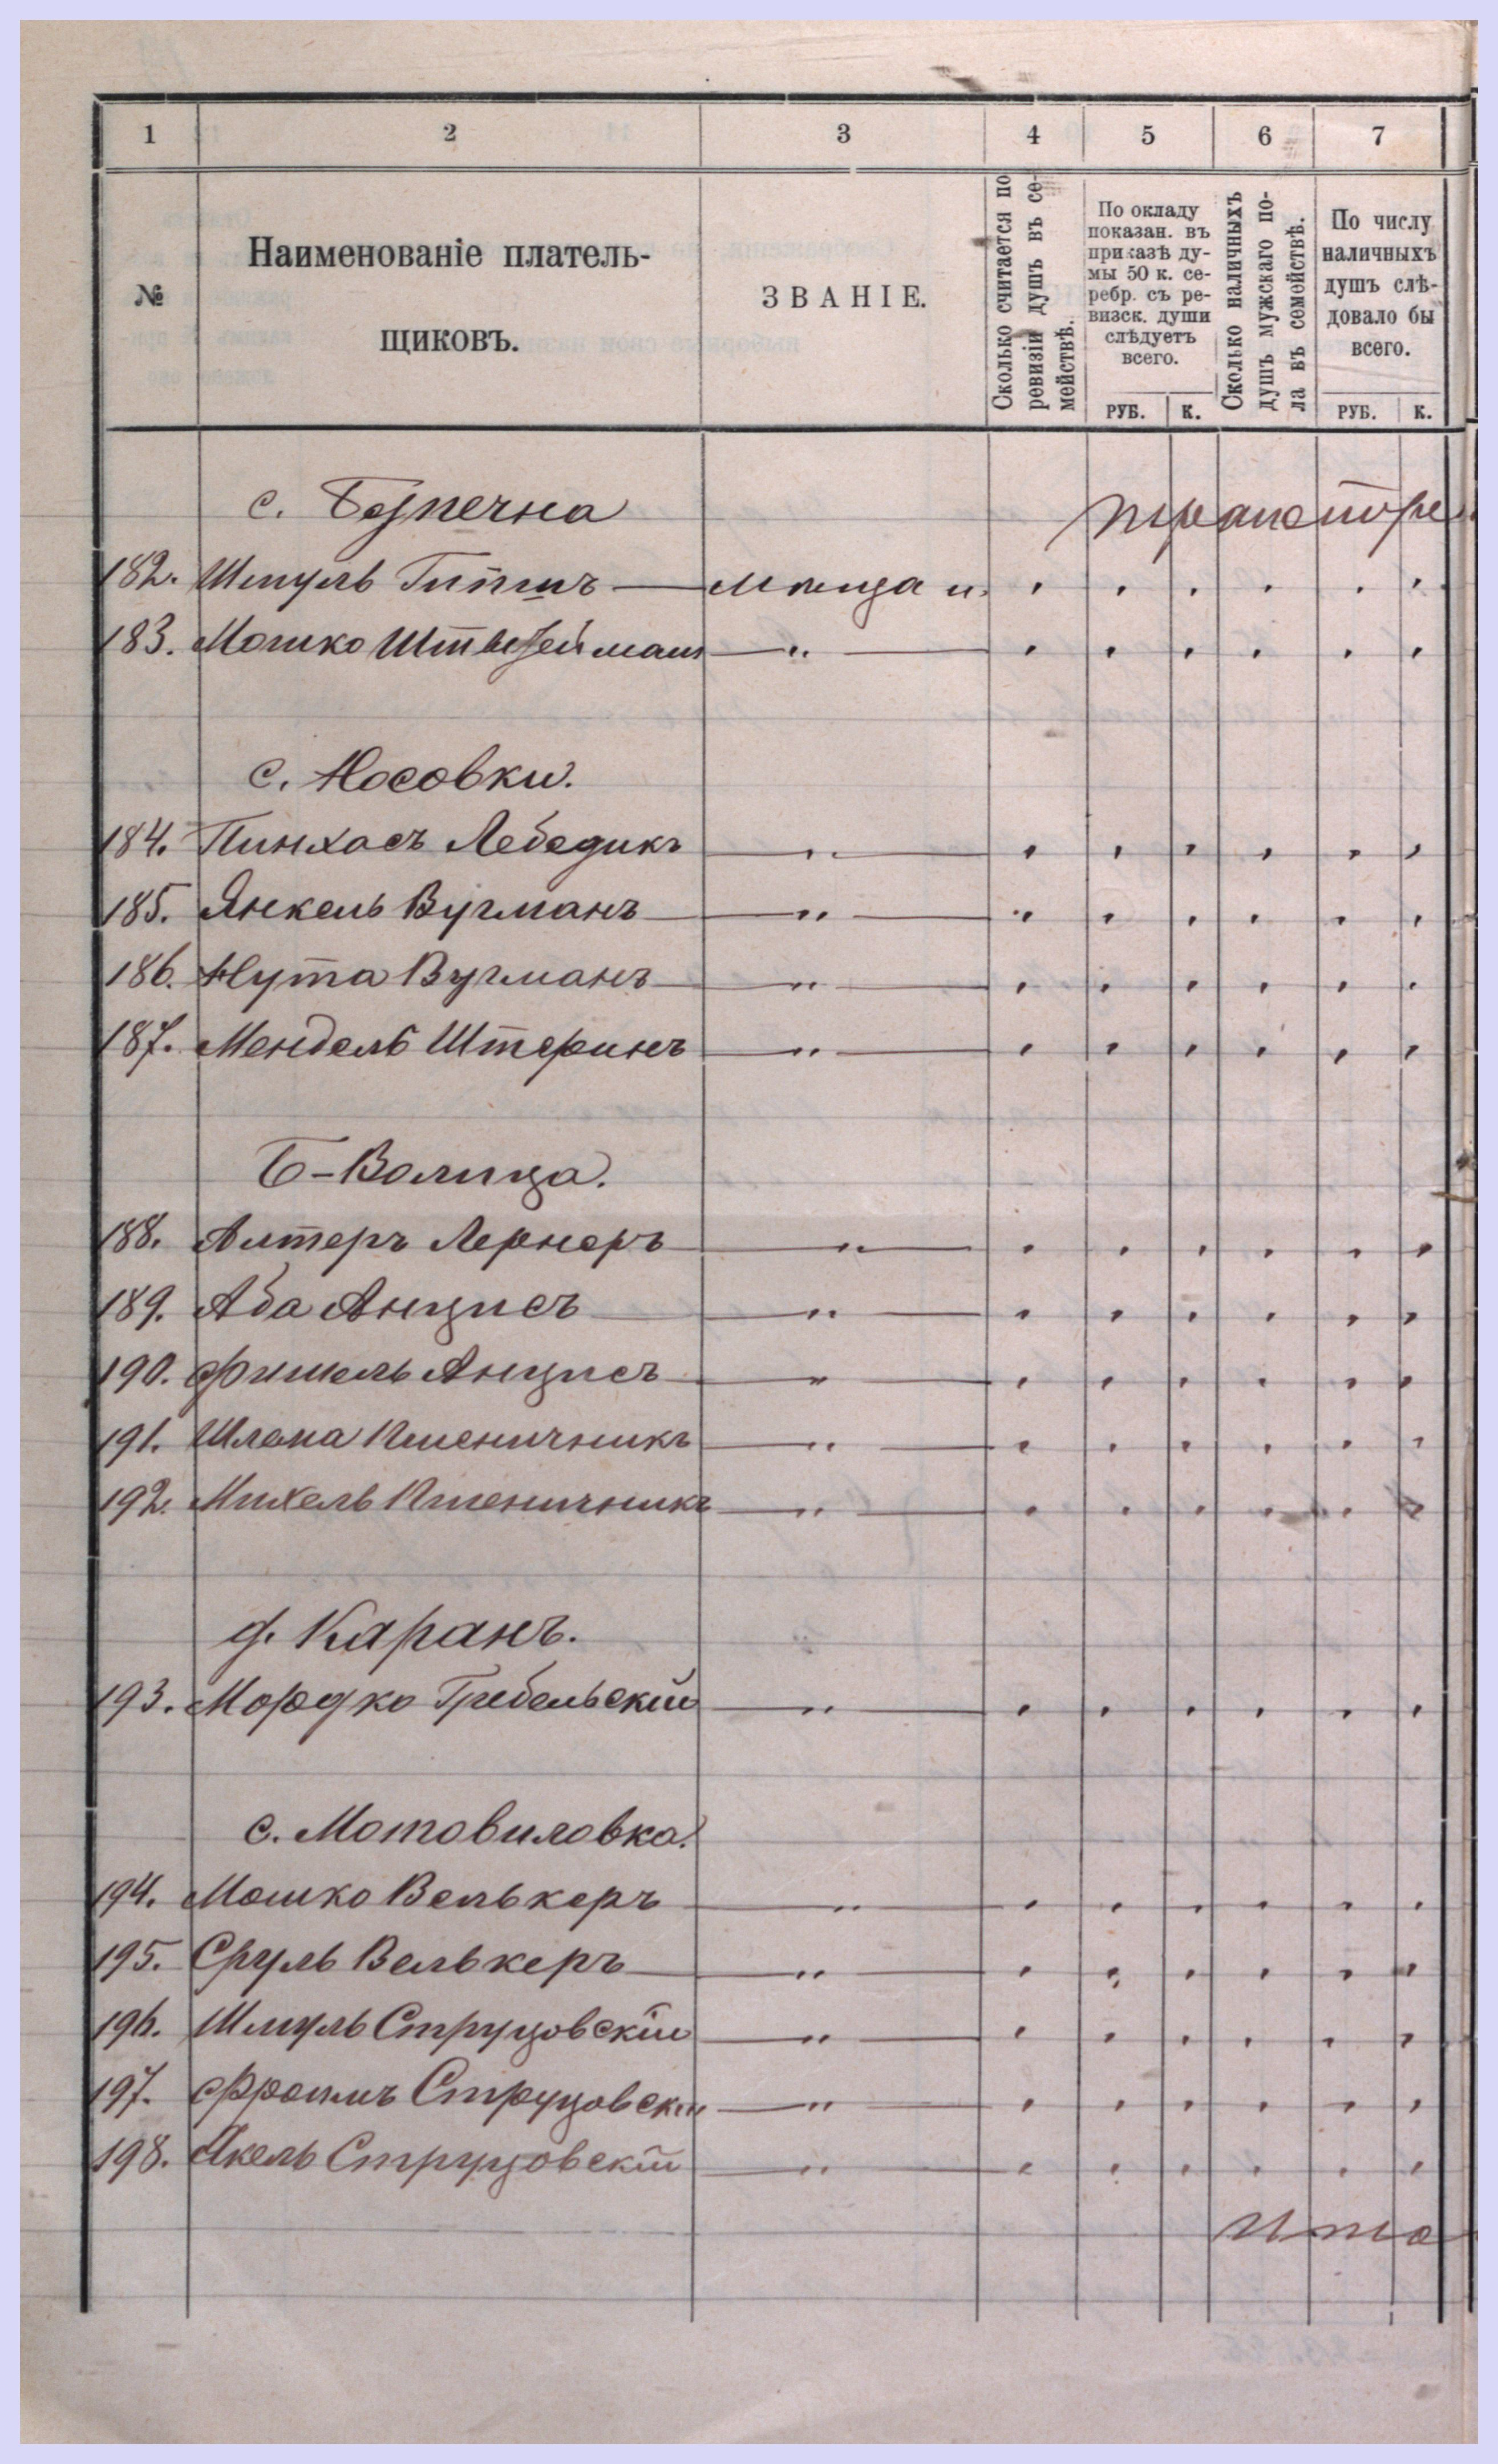 1 2 3 4 5 6 7
№
Наименованіе платель-
щиковъ.
ЗВАНІЕ.
Сколько считается по
ревизіи душъ въ се-
мействѣ.
По окладу
показан. въ
приказѣ ду-
мы 50 к. се-
ребр. съ ре-
визск. души
слѣдуетъ
всего.
РУБ. К.
Сколько наличныхъ
душъ мужскаго по-
ла въ семействѣ.
По числу
наличныхъ
душъ слѣ-
довало бы
всего.
РУБ. К.
с. Безпечна
транспорт
182. Шмуль мѣщан.
183. Мошко „
с. Носовки.
184. Пинхасъ Лебедикъ „
185. Янкель Вугманъ „
186. Нута Вугманъ „
187. Мендель Штеринъ „
Б-Волица.
188. Алтеръ Лернеръ „
189. Аба Анцисъ „
190. Фишель Анцисъ „
191. Шлема Пшеничникъ „
192. Михель Пшеничникъ „
д. Каранъ.
193. Мордко Гребельскій „
с. Мотовиловка.
194. Мошко Велькеръ „
195. Сруль Велькеръ „
196. Шмуль Струцовскій „
197. Фроимъ Струцовскій „
198. Акель Струцовскій „
Ито